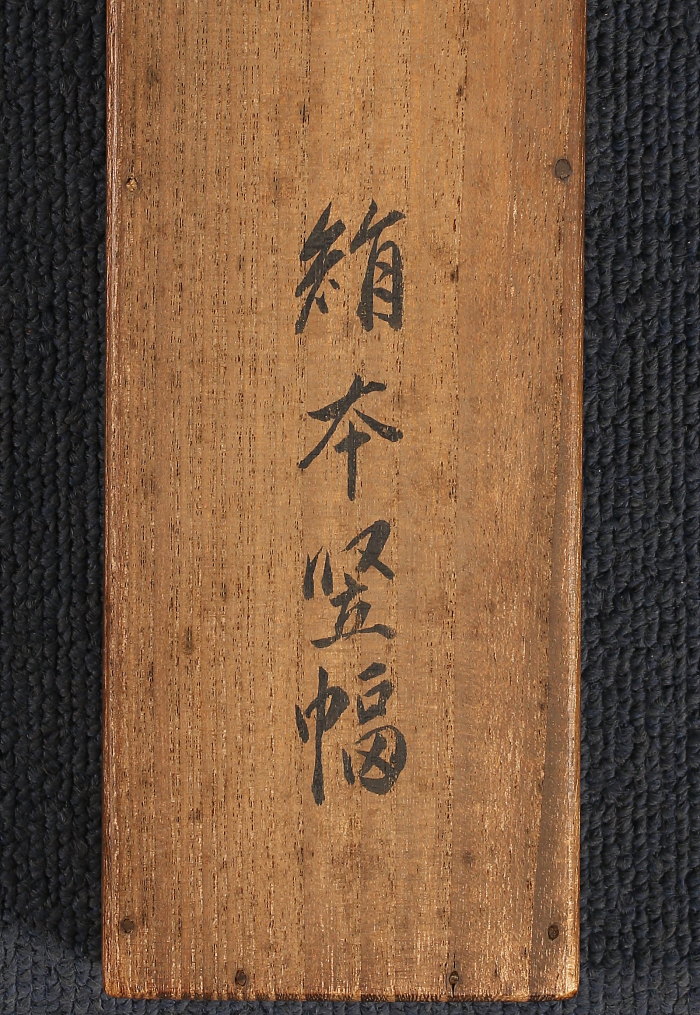 絹本竪幅